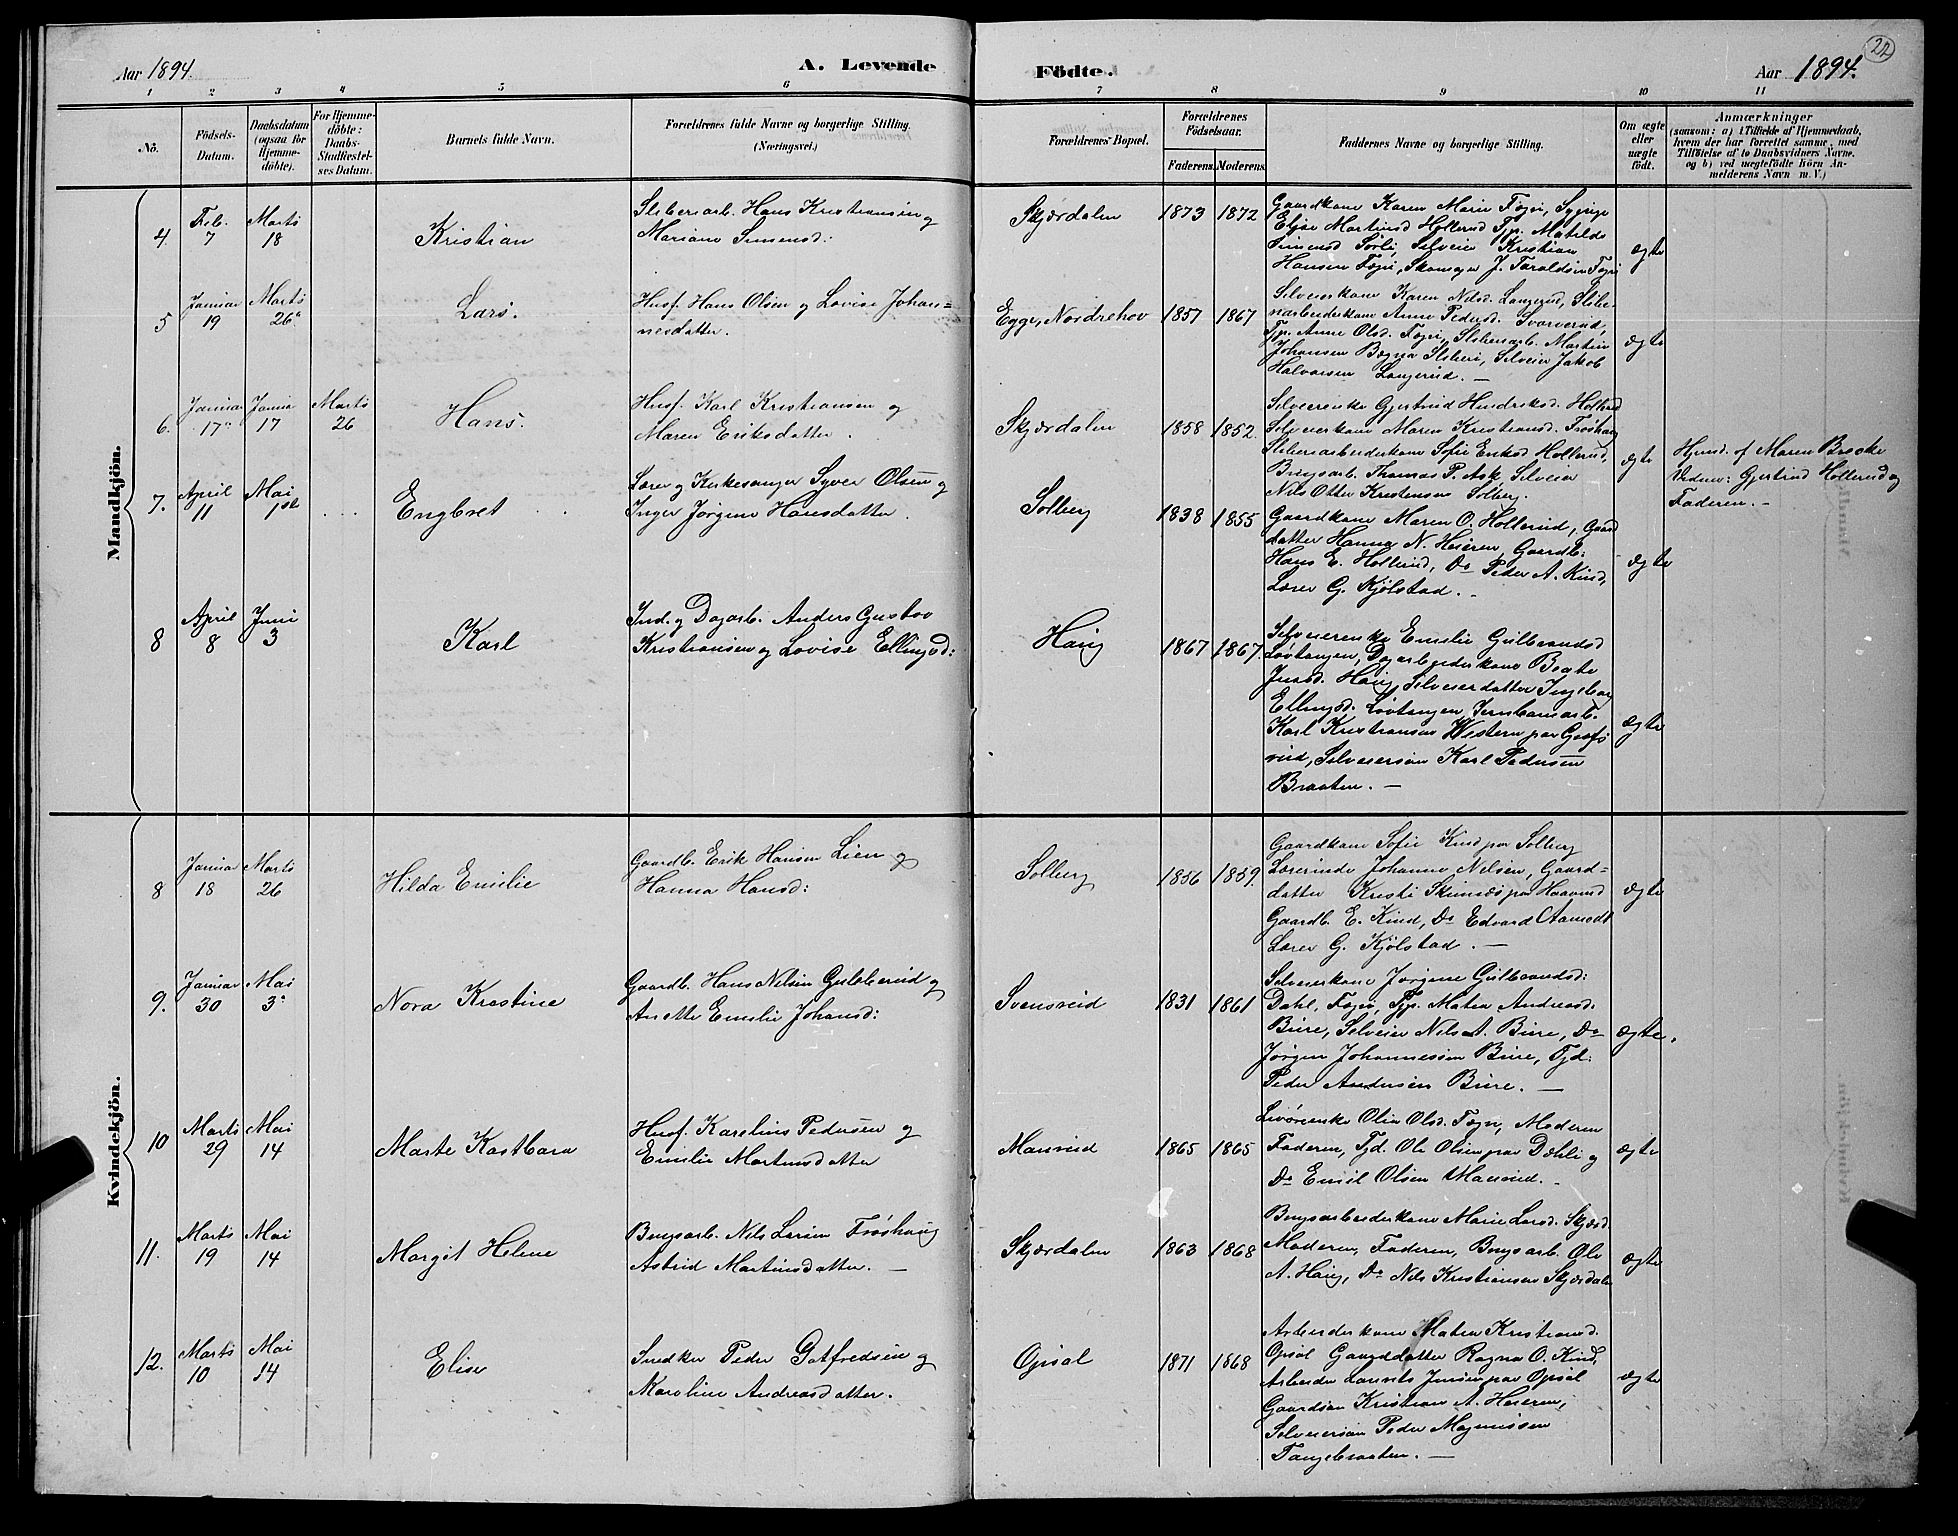 Aar 1894.
A. Levende
Födte.
Aar 1894.
22
1 2 3 4 5 6 7 8 9 10 11
No.
Födsels-
Datum.
Daabsdatum
(ogsaa for
Hjemme-
döbte).
For Hjemme-
döbte:
Daabs-
Stadfæstel-
ses Datum.
Barnets fulde Navn.
Forældrenes fulde Navne og borgerlige Stilling.
(Næringsvei.)
Forældrenes Bopæl.
Forældrenes
Födselsaar.
Faderens. Moderens.
Faddernes Navne og borgerlige Stilling.
Om ægte
eller
uægte
født.
Anmærkninger
(saasom: a) i Tilfælde af Hjemmedaab,
hvem der har forrettet samme, med
Tilföielse af to Daabsvidners Navne,
og b) ved uægtefödte Börn An-
melderens Navn m. V.)
Mandkjön.
4
Feb. 7
Marts 18
Kristian
Sliberiarb. Hans Kristiansen og
Mariane Simensd:
Skjærdalen
1873 1872
Gaardkone Karen Marie Fagri,
Elise Martinsd Hollerud Tp. Matilde
Simensd Sørli, Selveier Kristian
Hansen Fagri, Skomager J. Taraldsen
ægte
5
Januar 19
Marts 26
Lars.
Husf. Hans Olsen og Lovise Johan=
nesdatter.
Egge, Nordrehov
1857 1867
Selveierkone Karen Nilsd. Langerud, Slibe-
riarbeiderkone Anne Pedersd. Svarverud,
Tp. Anne Olsd. Fagri, Sliberiarb. Martin
Johansen Bægna Sliberi, Selveier Jakob
Halvorsen Langerud. —
ægte
6.
Januar 17
Janua 17
Marts 26
Hans.
Husf. Karl Kristiansen og
Maren Eriksdatter.
Skjærdalen
1858 1852.
Selveierenke Gjertrud Hendriksd. Hollerud
Selveierkone Maren Kristiansd. Frøshaug
Sliberiarbeiderkone Sofie Eriksd Hollerud,
Brugsarb. Thomas P. Ask, Selveier
Nils Otter Kristensen Solberg.
ægte
Hjemd. af Maren Braate
Vidner: Gjertrud Hollerud og
Faderen. —
7.
April 11
Mai 1st
Engebret
Lærer og Kirkesanger Syver Olsen og
Inger Jørgine Hansdatter.
Solberg
1838 1855
Gaardkone Maren O. Hollerud, Gaard
datter Hanna N. Heieren, Gaardb:
Hans E. Hollerud, Do Peder A. Kind,
Lærer G. Kjølstad. —
ægte
8
April 8
Juni 3
Karl
Ind. og Dagarb. Anders Gustav
Kristiansen og Lovise Ellingsd:
Haug
1867 1867.
Selveierenke Emilie Gulbrandsd
Løvtangen, Dagarbeiderkone Beate
Jensd. Haug, Selveierdatter Ingeborg
Ellingsd. Løvtangen, Jernbanearb.
Karl Kristiansen Western paa
rud, Selveiersøn Karl Pedersen
Braaten. —
ægte
Kvindekjön.
8
Januar 18
Marts 26
Hilda Emilie
Gaardb. Erik Hansen Lien og
Hanna Hansd:
Solberg
1856 1859.
Gaardkone Sofie Kind paa Solberg
Lærerinde Johanne Nilsen, Gaard=
datter Kristi Skinnes paa Haarud
Gaardb. E. Kind, Do Edvard Aamodt
Lærer G. Kjølstad. —
ægte
9.
Januar 30
Mai 3
Nora Kristine
Gaardb. Hans Nilsen Gulbberud og
Anette Emilie Johansd:
Svensrud
1831 1861
Selveierkone Jørgine Gulbrandsd:
Dahl, Fagri, Tp. Matea Andreasd.
Bure, Selveier Nils A. Bure, Do
Jørgen Johannesen Bure, Tjd.
Peder Andersen Bure. —
ægte.
10
Marts 29
Mai 14
Marte Kastbara
Husf. Karelius Pedersen og
Emilie Martinsdatter
Mausrud
1865 1865
Livørenke Olia Olsd. Fagri, Moderen
Faderen, Tjd. Ole Olsen paa Dæhli og
Do Emil Olsen Mausrud. —
ægte
11.
Marts 19
Mai 14
Margit Helene
Brugsarb. Nils Larsen Frøshaug
Astrid Martinsdatter. —
Skjærdalen
1863 1868
Brugsarbeiderkone Marie Larsd. Skjærd.
Moderen, Faderen, Brugsarb. Ole
A. Haug, Do Nils Kristiansen Skjærdalen
ægte
12.
Marts 10
Mai 14
Elise
Snedker Peder Gotfredsen og
Karoline Andreasdatter.
Opsal
1871 1868
Arbeiderkone Matea Kristiansd.
Opsal Gaarddatter Ragna O. Kind,
Arbeider Laurits Jensen paa Opsal
Gaardsøn Kristian A. Heieren,
Selveiersøn Peder Magnussen
Tangebraaten. —
ægte